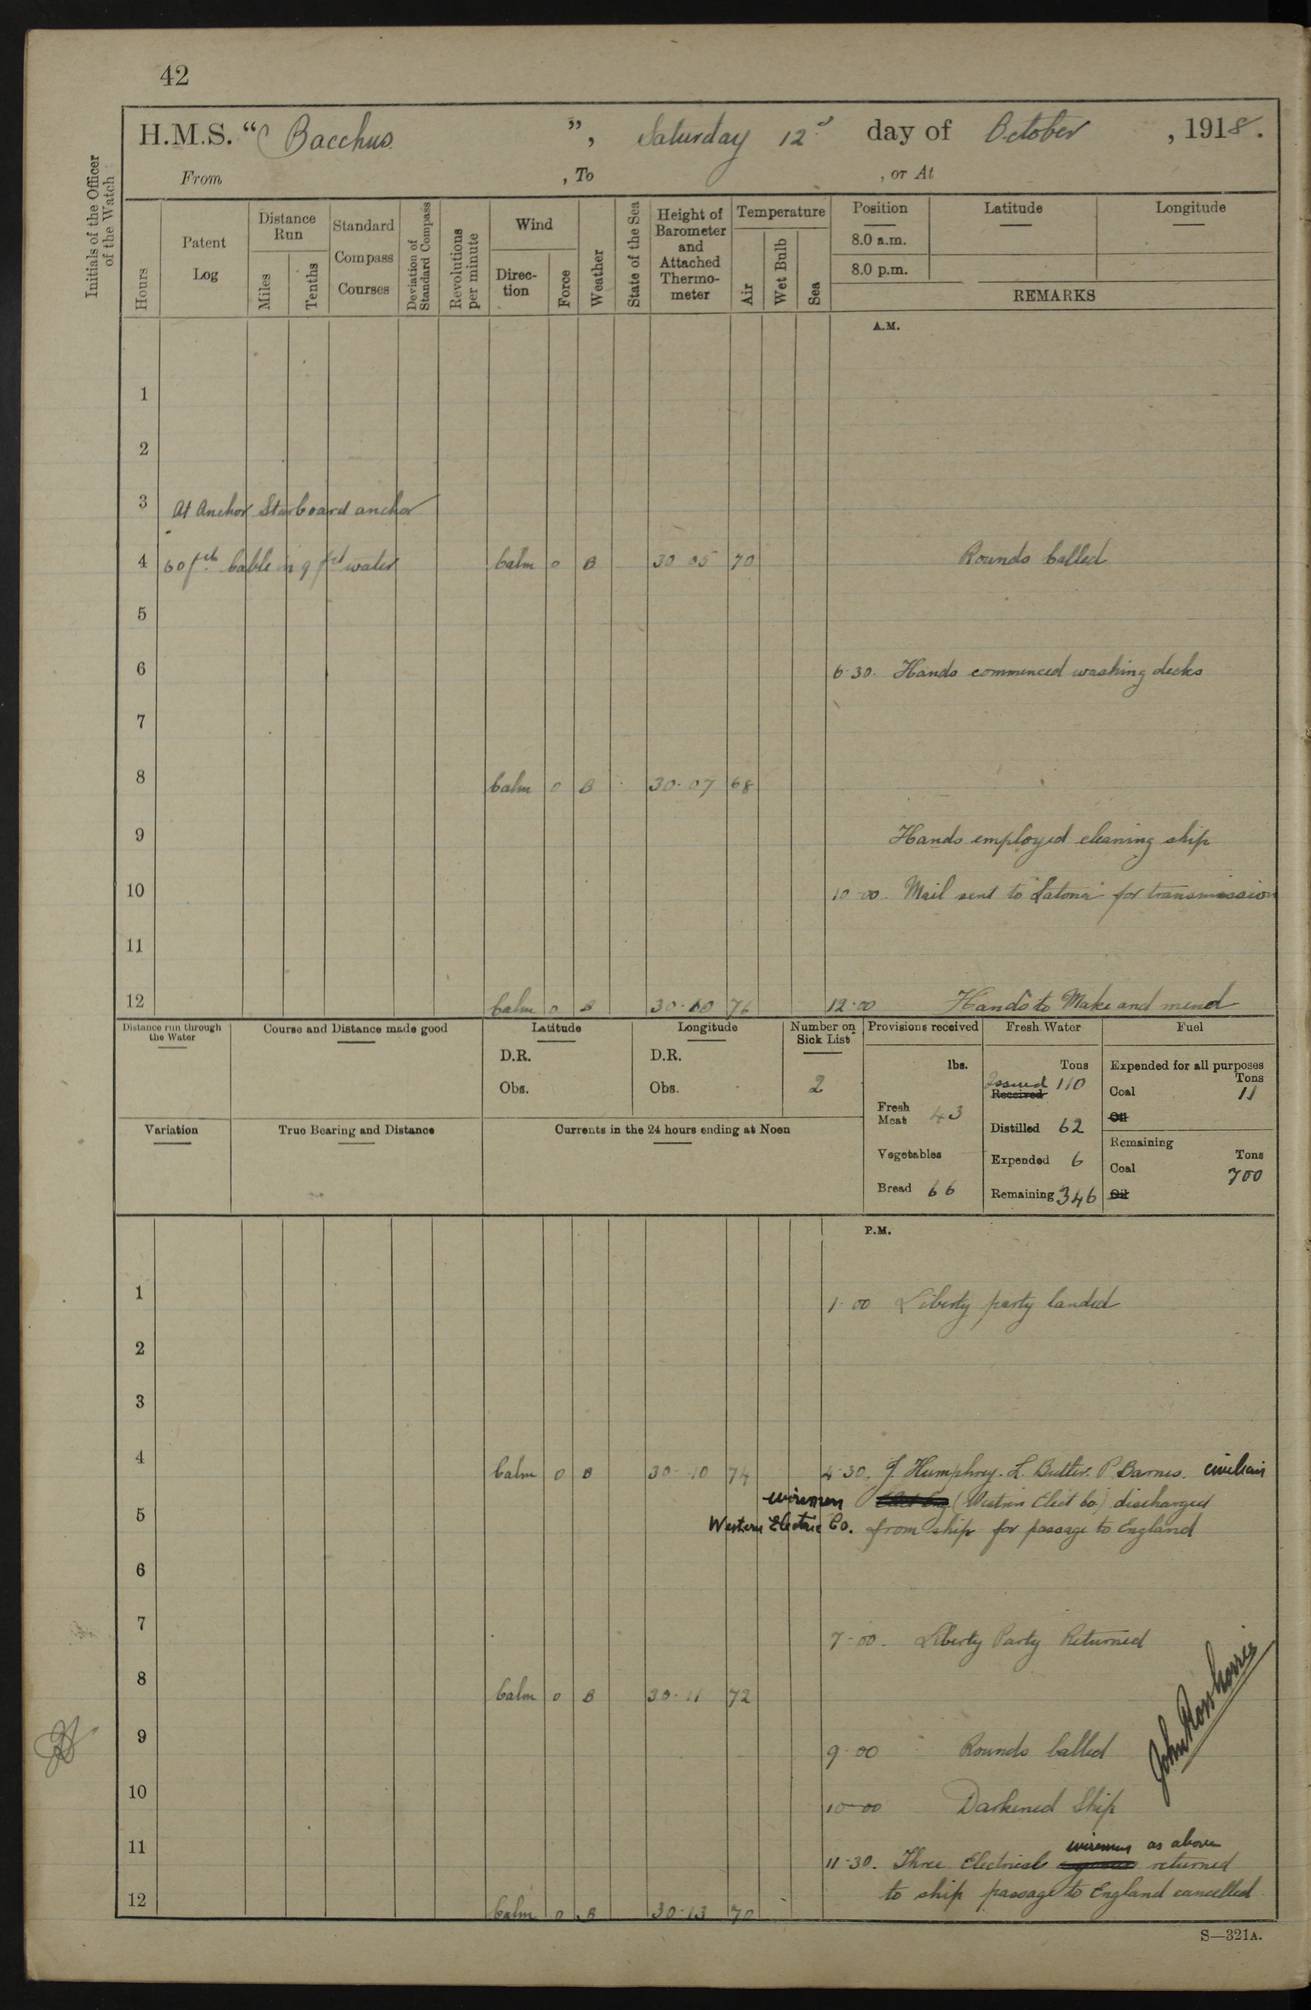 42
H.M.S. “ Bacchus ”, Saturday 12 day of October , 1918.
From , To , or At
Initials of the Officer of the Watch
Hours
Patent Log
Distance Run
Miles
Tenths
Standard Compass Courses
Deviation of Standard Compass
Revolutions per minute
Wind
Direc-tion
Force
Weather
State of the Sea
Height of Barometer and Attached Thermo-meter
Temperature
Air
Wet Bulb
Sea
Position Latitude Longitude
8.0 a.m.
8.0 p.m.
REMARKS
A.M.
1
2
3 At Anchor Starboard anchor
4 60 fth Cable in 9 fth water Calm 0 B 30 05 70 Rounds Called
5
6 6·30. Hands commenced washing decks
7
8 Calm 0 B 30·07 68
9 Hands employed cleaning ship
10 10·00. Mail sent to "Latona" for transmission
11
12 Calm 0 B 30·10 76 12·00 Hands to Make and mend
Distance run through the Water
Course and Distance made good
Latitude
D.R.
Obs.
Longitude
D.R.
Obs.
Number on Sick List
2
Provisions received
lbs.
Fresh Meat 43
Vegetables
Bread 66
Fresh Water
Tons
Issued 110
Received
Distilled 62
Expended 6
Remaining 346
Fuel
Expended for all purposes
Tons
Coal 11
Oil
Remaining
Tons
Coal 700
Oil
Variation
True Bearing and Distance
Currents in the 24 hours ending at Noon
P.M.
1 1·00 Liberty party landed
2
3
4 Calm 0 B 30·10 74 4·30. J. Humphrey. L. Butler. P. Barnes. civilian
wiremen (Western Elect Co.) discharged
5 Western Electric Co. from ship for passage to England
6
7 7·00. Liberty Party Returned
8 Calm 0 B 30·11 72
9 9·00 Rounds Called
10 10·00 Darkened Ship
John Ross Norris
wiremen as above
11 11·30. Three Electrical returned
to ship passage to England cancelled
12 Calm 0 B 30·13 70
S—321A.